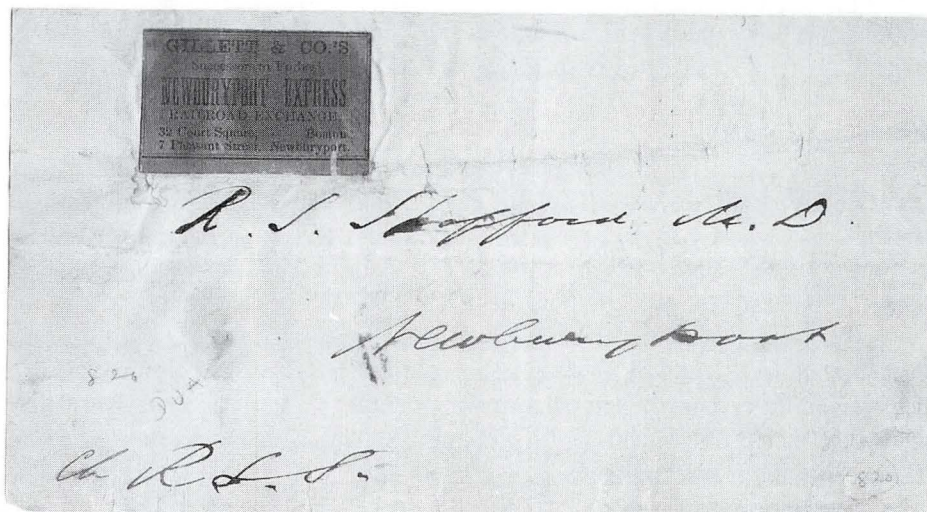 GILLETT & CO.'S
Successors to Forbes'
NEWBURYPORT EXPRESS
RAILROAD EXCHANGE,
32 Court Square, Boston.
7 Pleasant Street, Newburyport.
R. S. Spofford M. D.
Newburyport
820
Ch R. S. S.
820